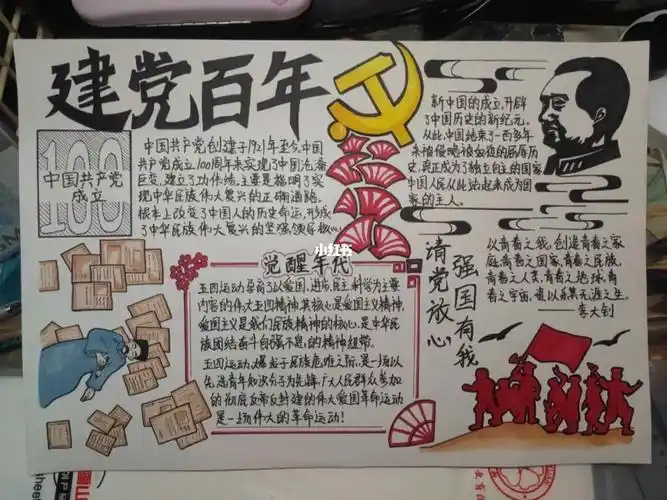 建党百年
100
中国共产党
成立
中国共产党,创建于1921年至今,中国
共产党成立100周年来实现了中国沧海
巨变,建立了功伟绩,主要是指明了实
现中华民族伟大复兴的正确道路。
根本上改变了中国人的历史命运,形成
了中华民族伟大复兴的坚强领导核心
新中国的成立,开辟
了中国历史的新纪元。
从此,中国结束了一百多年
来被侵略被奴役的屈辱历
史,真正成为了独立自主的国家,
中国人民从此站起来成为国
家的主人。
小红书
觉醒年代
五四运动,孕育了以爱国,进步,民主,科学为主要
内容的伟大五四精神,其核心是爱国主义精神,
爱国主义是我们民族精神的核心,是中华民
族团结奋斗自强不息,的精神纽带。
五四运动,爆发于民族危难之际,是一场以
先进青年知识分子为先锋,广大人民群众参加
的彻底反帝反封建的伟大爱国革命运动
是一场伟大的革命运动!
请党放心
强国有我
以青春之我,创造青春之家
庭,青春之国家,青春之民族,
青春之人类,青春之地球,青
春之宇宙,資以乐其无涯之生。
——李大钊